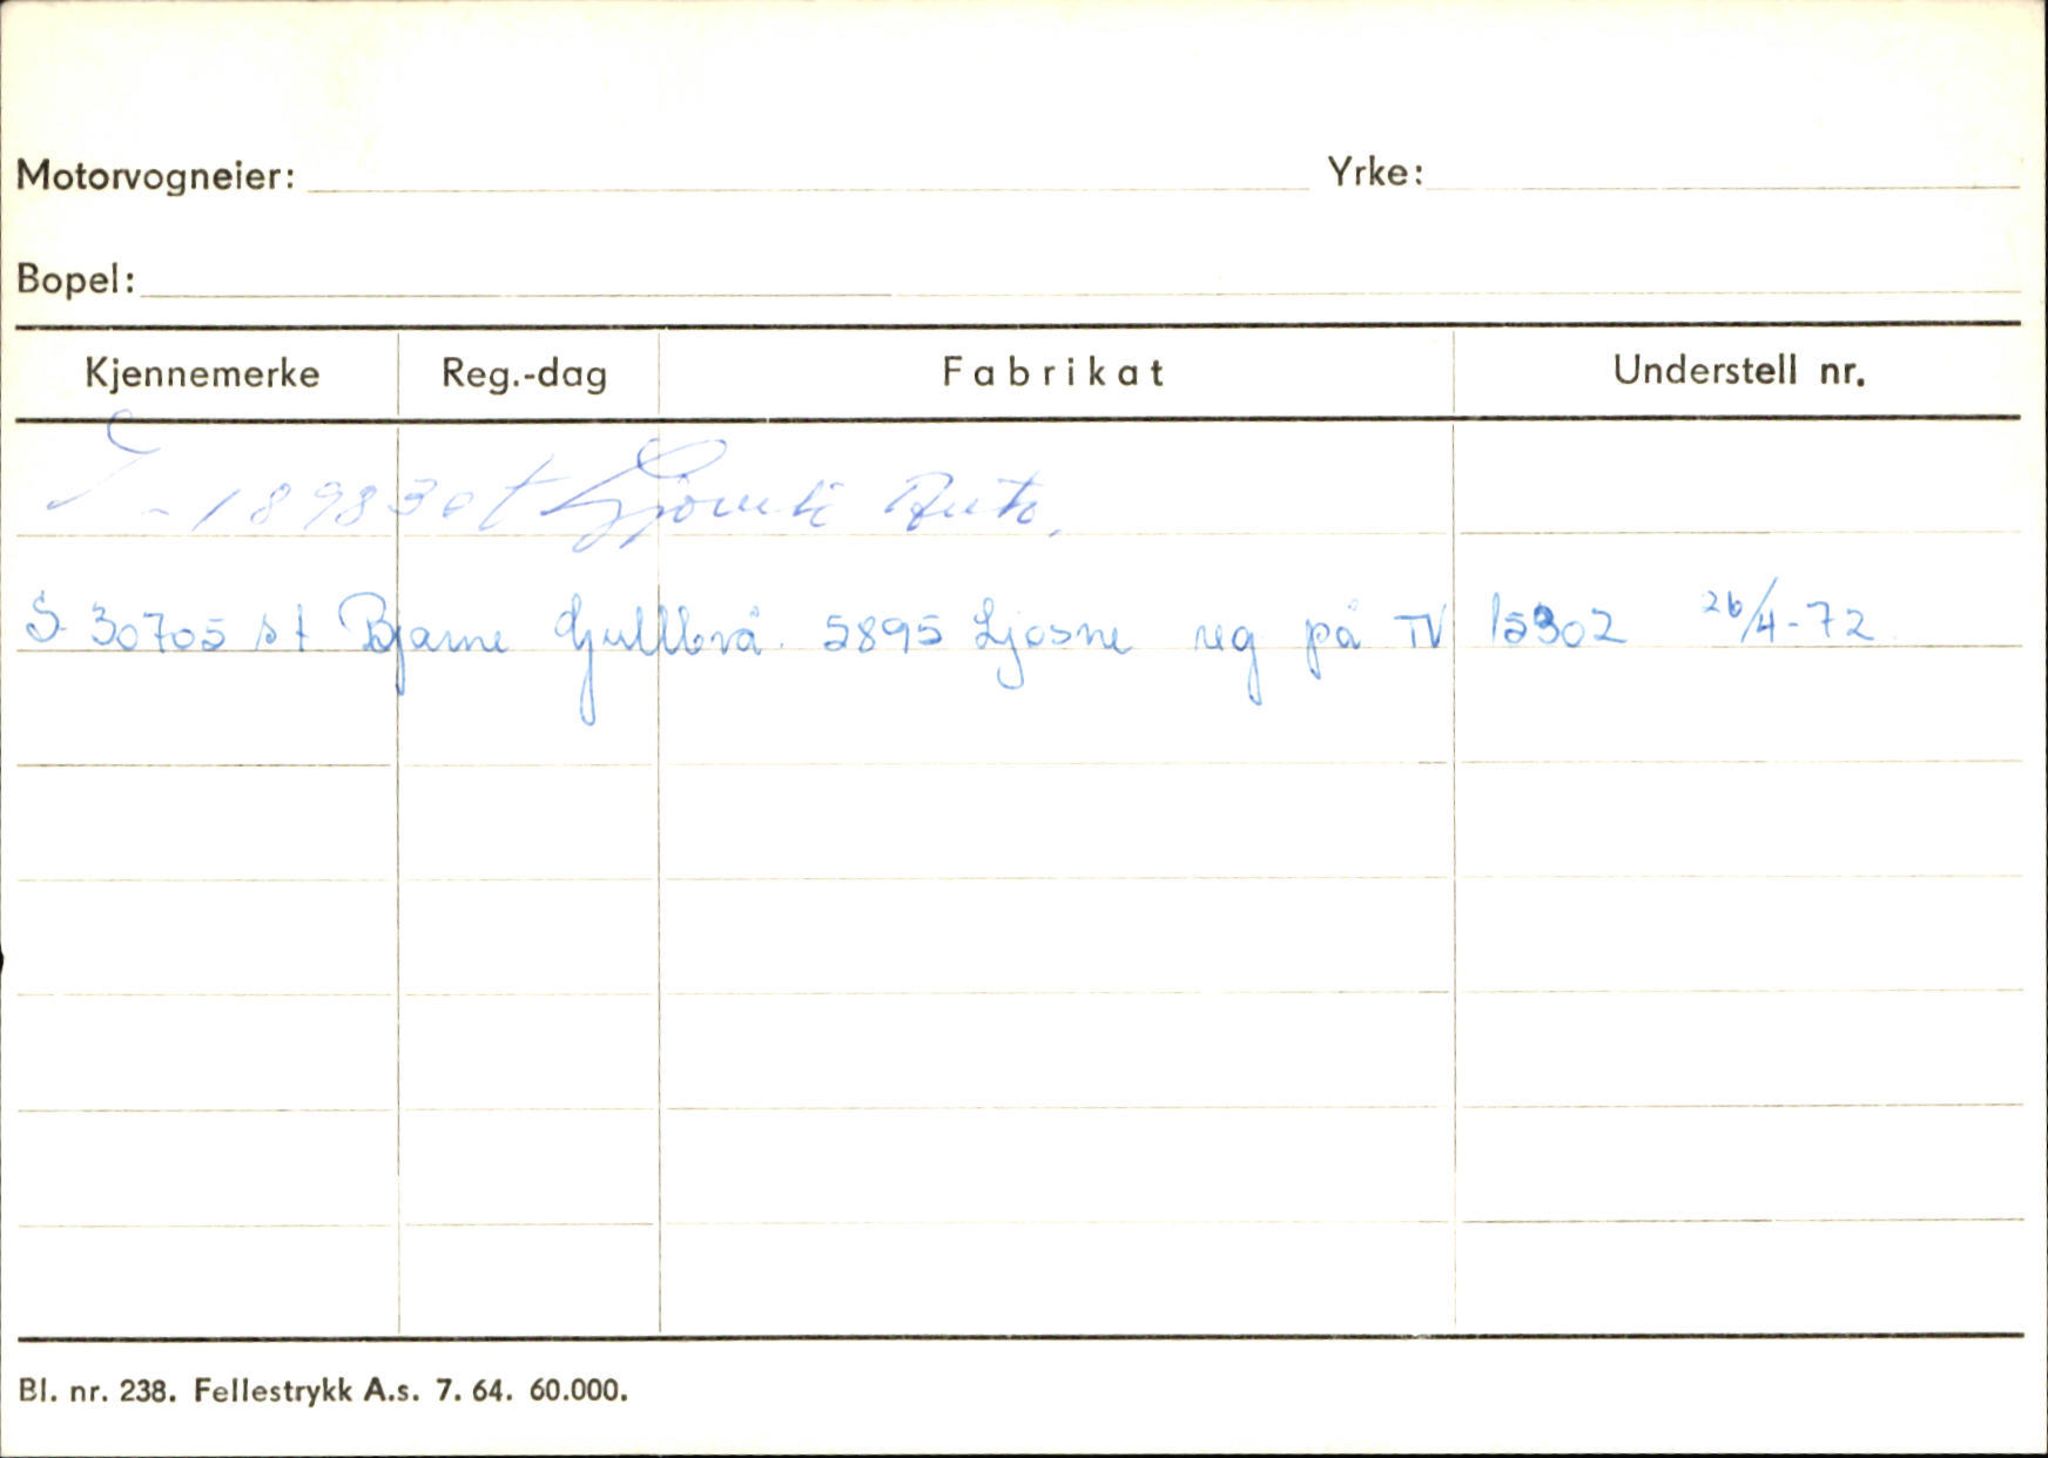 Motorvogneier: Yrke:
Bopel:
Kjennemerke Reg.-dag Fabrikat Understell nr.
S-18983 ot Auto.
S 30705 st Bjarne Gullbrå. 5895 Ljosne reg på TV 15302 26/4-72
Bl. nr. 238. Fellestrykk A.s. 7. 64. 60.000.